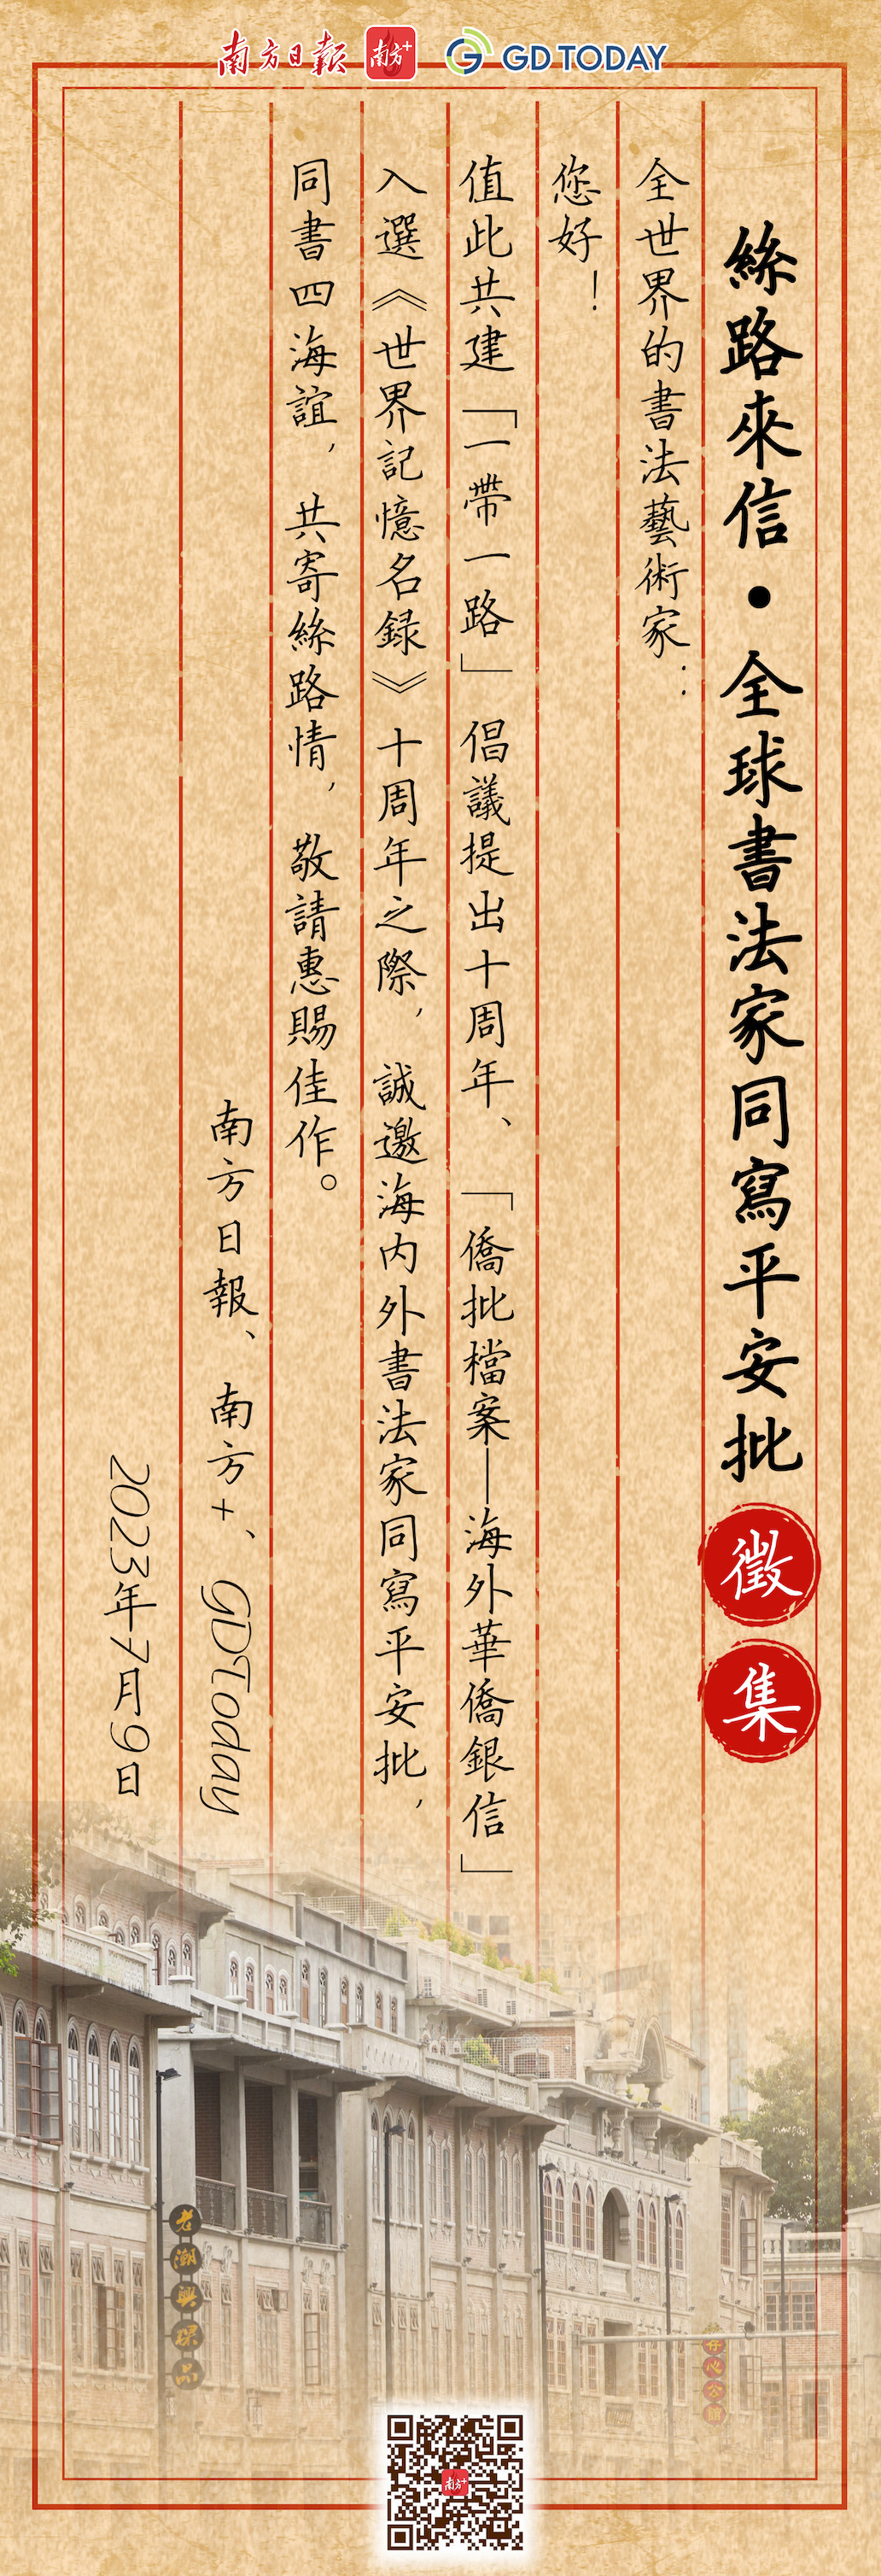 南方日報 南方+ GD TODAY
絲路來信·全球書法家同寫平安批
徵集
全世界的書法藝術家：
您好！
值此共建「一帶一路」倡議提出十周年、「僑批檔案—海外華僑銀信」
入選《世界記憶名録》十周年之際，誠邀海内外書法家同寫平安批，
同書四海誼，共寄絲路情，敬請惠賜佳作。
南方日報、南方+、GDToday
2023年7月9日
老潮興粿品
存心公館
南方+